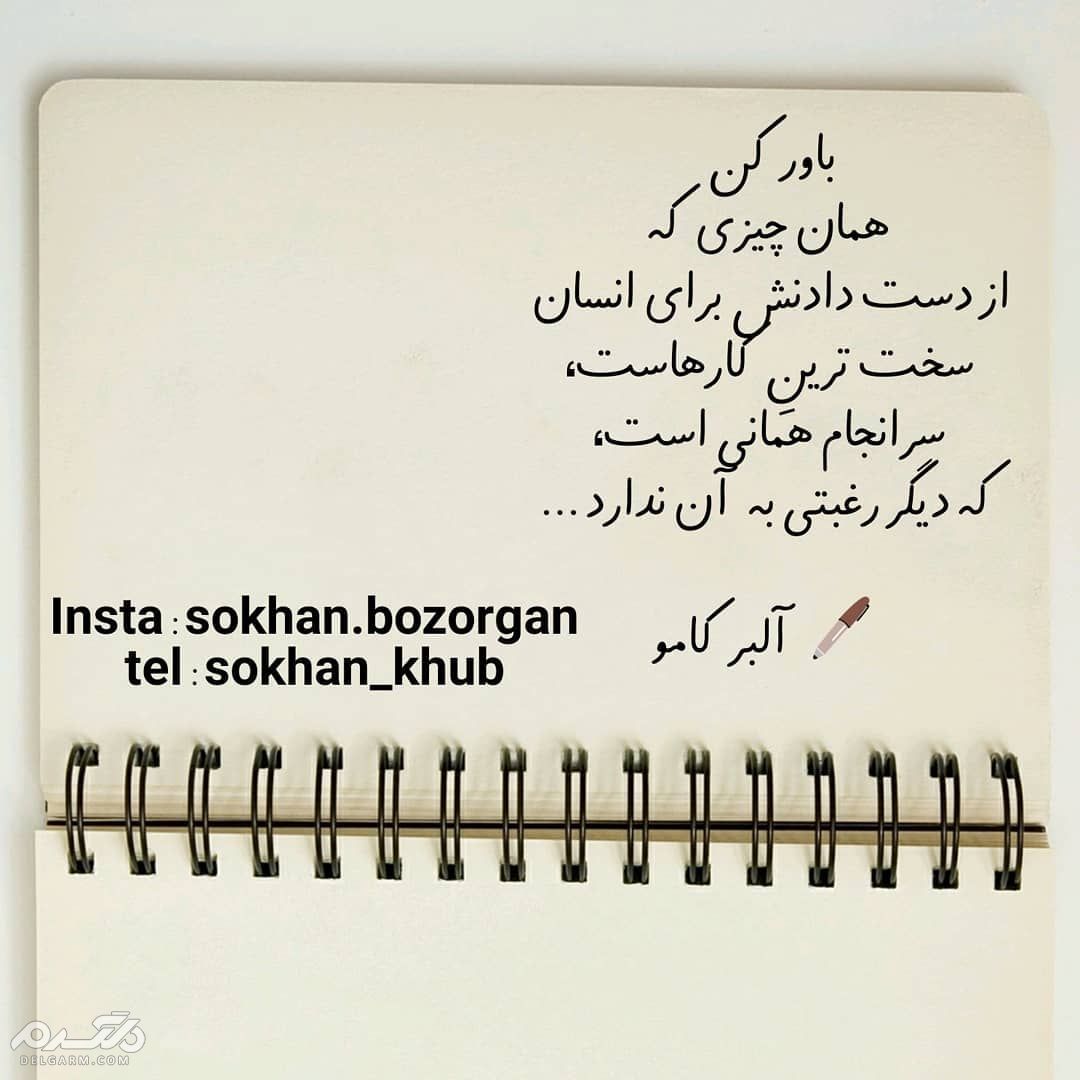 باور کن
همان چیزی که
از دست دادنش برای انسان
سخت ترینِ کارهاست،
سرانجام هَمانی است،
که دیگر رغبتی به آن ندارد ...
آلبر کامو
Insta : sokhan.bozorgan
tel : sokhan_khub
دلگرم
DELGARM.COM